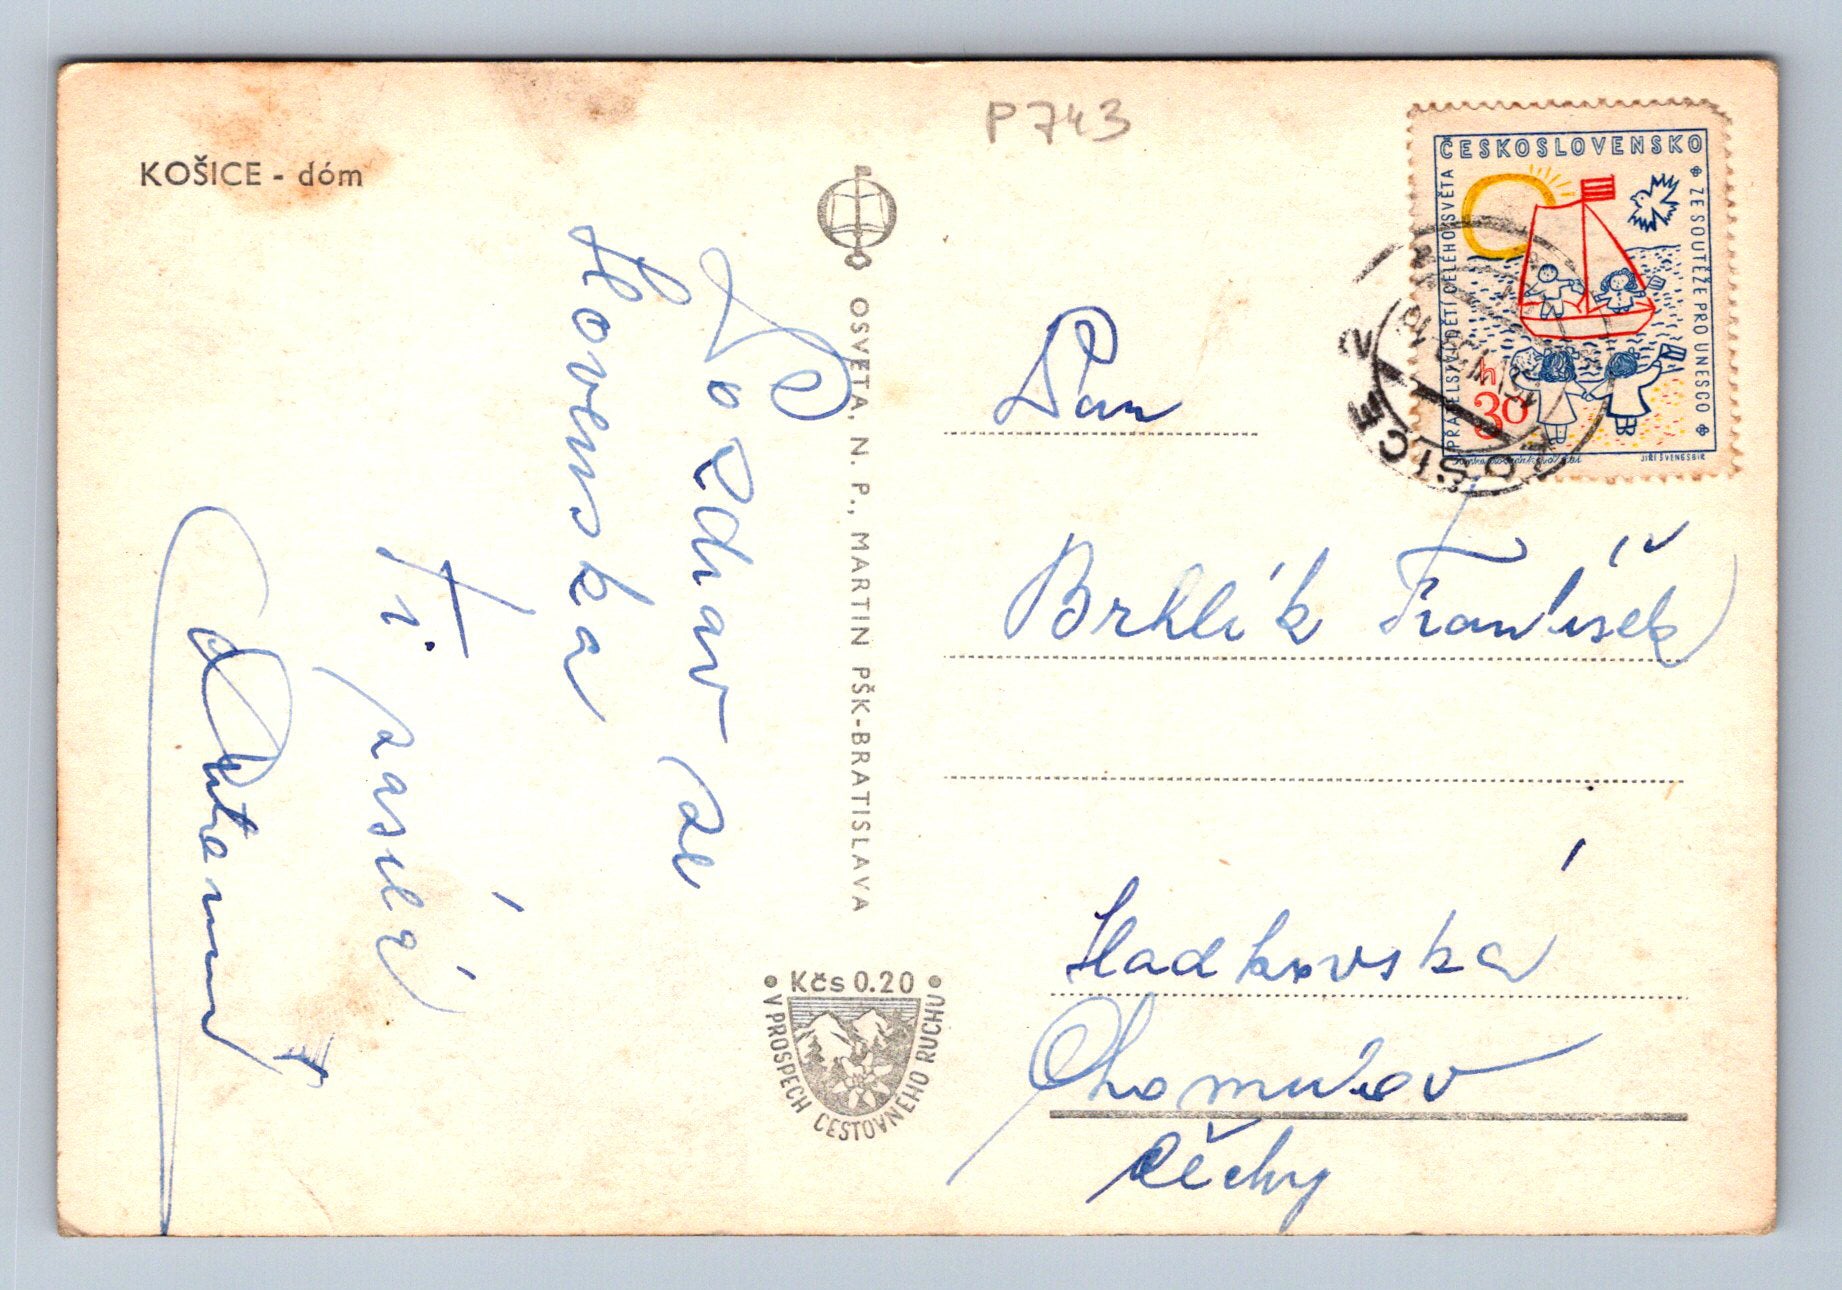 KOŠICE - dóm
P 743
Pozdrav ze
Slovenska
Ti
zasílá
OSVETA, N. P., MARTIN PŠK-BRATISLAVA
Kčs 0.20
V PROSPECH CESTOVNÉHO RUCHU
ČESKOSLOVENSKO
PRÁTELSTVÍ DĚTÍ CELÉHO SVĚTA
ZE SOUTĚŽE PRO UNESCO
h
30
JIŘÍ ŠVENGSBÍR
KOŠICE 2
Pan
Brhlík František
Hladkovská
Chomutov
Čěchy